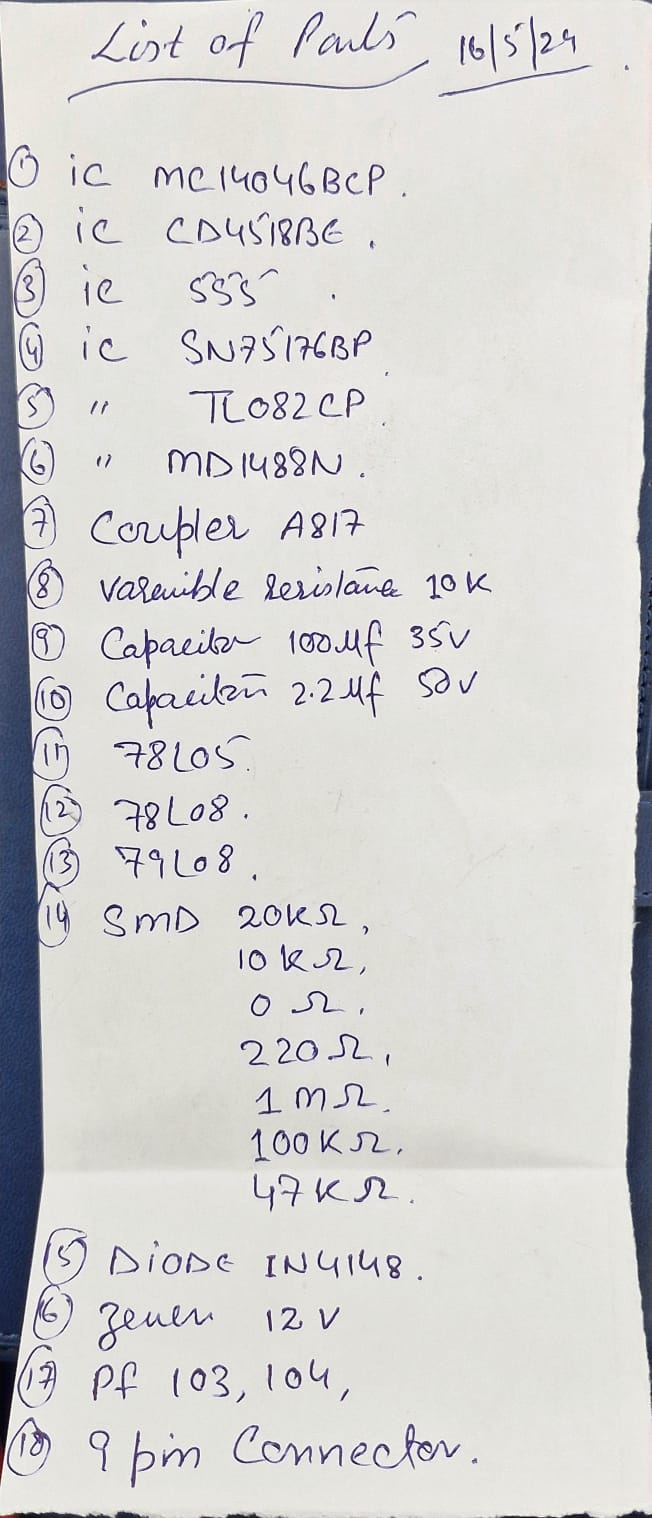 List of Parts 16/5/24
① ic MC14046BCP.
② ic CD4518BE.
③ ic 555.
④ ic SN75176BP
⑤ " TL082CP.
⑥ " MD1488N.
⑦ Coupler A817
⑧ Varaible resistance 10K
⑨ Capacitor 100Mf 35V
⑩ Capacitor 2.2Mf 50V
⑪ 78L05.
⑫ 78L08.
⑬ 79L08.
⑭ SMD 20KΩ,
10KΩ,
0Ω,
220Ω,
1MΩ.
100KΩ.
47KΩ.
⑮ DiODE IN4148.
⑯ Zener 12V
⑰ Pf 103, 104,
⑱ 9 pin Connector.